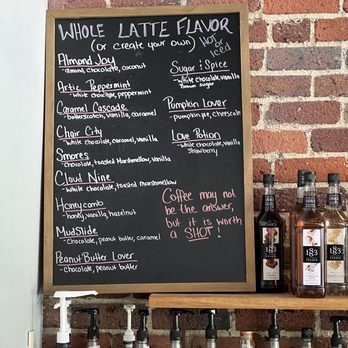 WHOLE LATTE FLAVOR
(or create your own)
HOT or ICED
Almond Joy
- almond, chocolate, coconut
Artic Peppermint
- white chocolate, peppermint
Caramel Cascade
- butterscotch, vanilla, caramel
Chair City
- white chocolate, caramel, vanilla
Smores
- chocolate, toasted Marshmallow, vanilla
Cloud Nine
- white chocolate, toasted marshmallow
Honeycomb
- honey, vanilla, hazelnut
MudSlide
- Chocolate, peanut butter, caramel
Peanut Butter Lover
- chocolate, peanut butter
Sugar & Spice
- white chocolate, vanilla
brown sugar
Pumpkin Lover
- pumpkin pie, cheesecake
Love Potion
- White chocolate, vanilla
Strawberry
Coffee may not
be the answer,
but it is worth
a SHOT!
1883
1883
1883